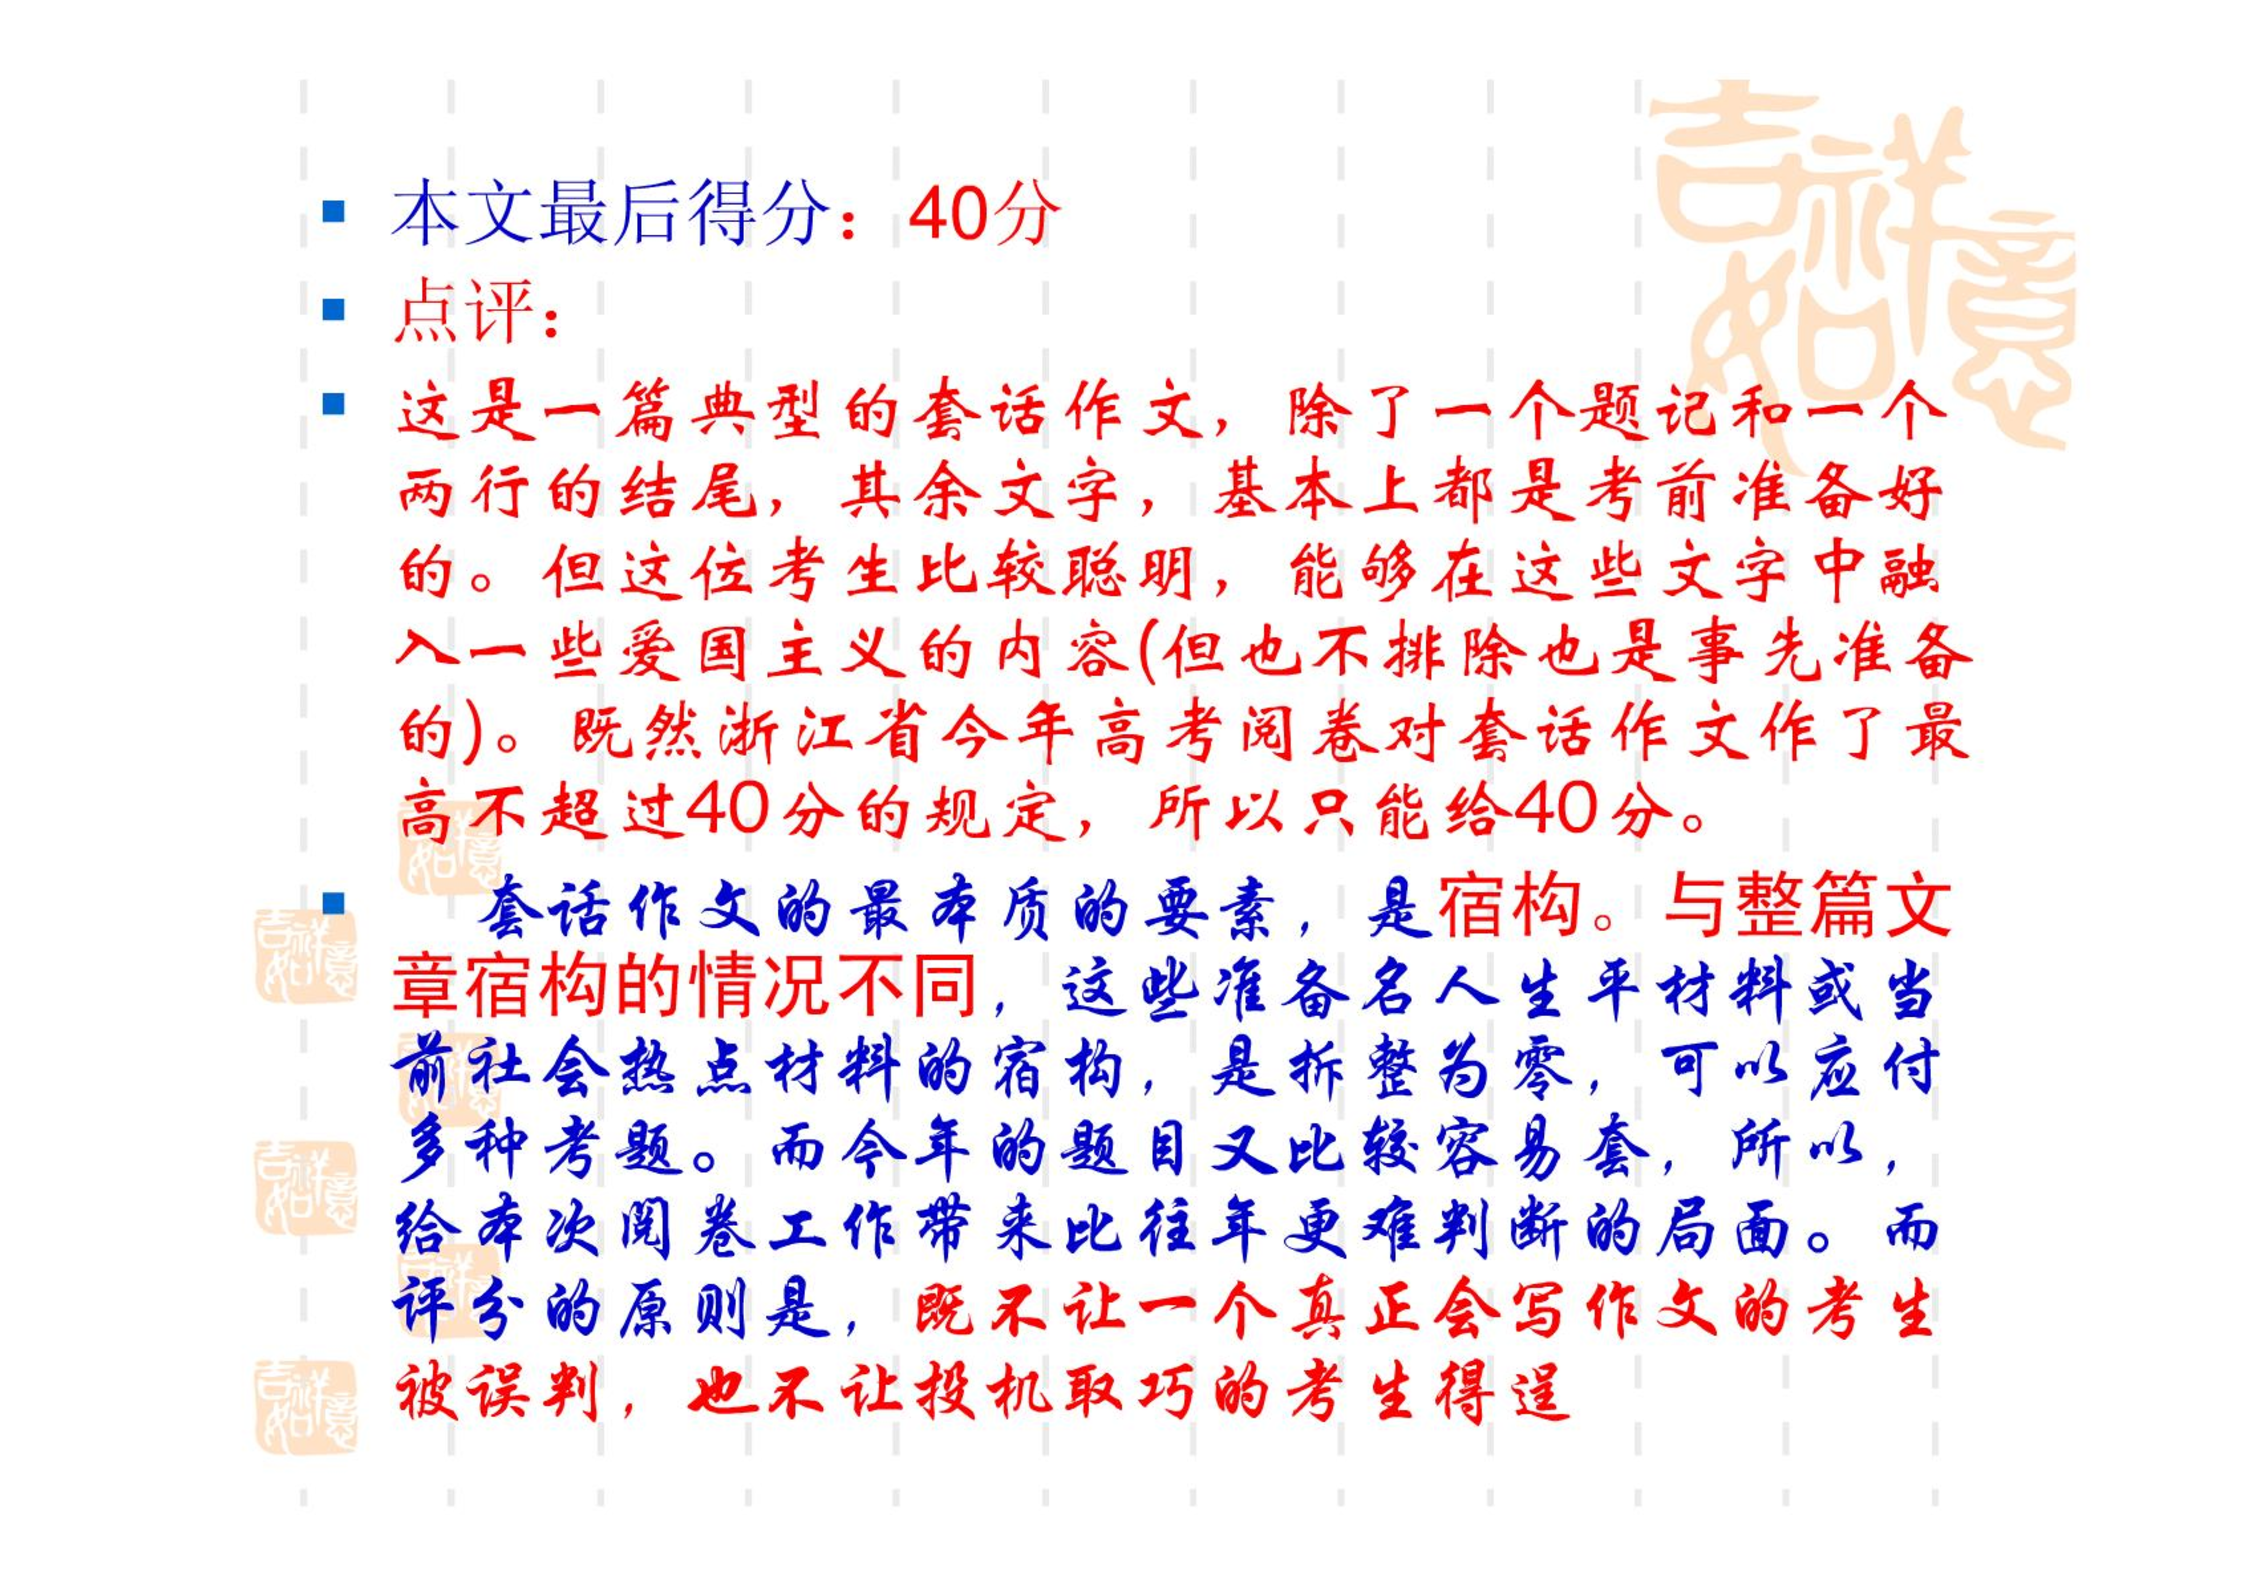 本文最后得分：40分
点评：
这是一篇典型的套话作文，除了一个题记和一个
两行的结尾，其余文字，基本上都是考前准备好
的。但这位考生比较聪明，能够在这些文字中融
入一些爱国主义的内容(但也不排除也是事先准备
的)。既然浙江省今年高考阅卷对套话作文作了最
高不超过40分的规定，所以只能给40分。
套话作文的最本质的要素，是宿构。与整篇文
章宿构的情况不同，这些准备名人生平材料或当
前社会热点材料的宿构，是拆整为零，可以应付
多种考题。而今年的题目又比较容易套，所以，
给本次阅卷工作带来比往年更难判断的局面。而
评分的原则是，既不让一个真正会写作文的考生
被误判，也不让投机取巧的考生得逞
吉祥如意
吉祥如意
吉祥如意
吉祥如意